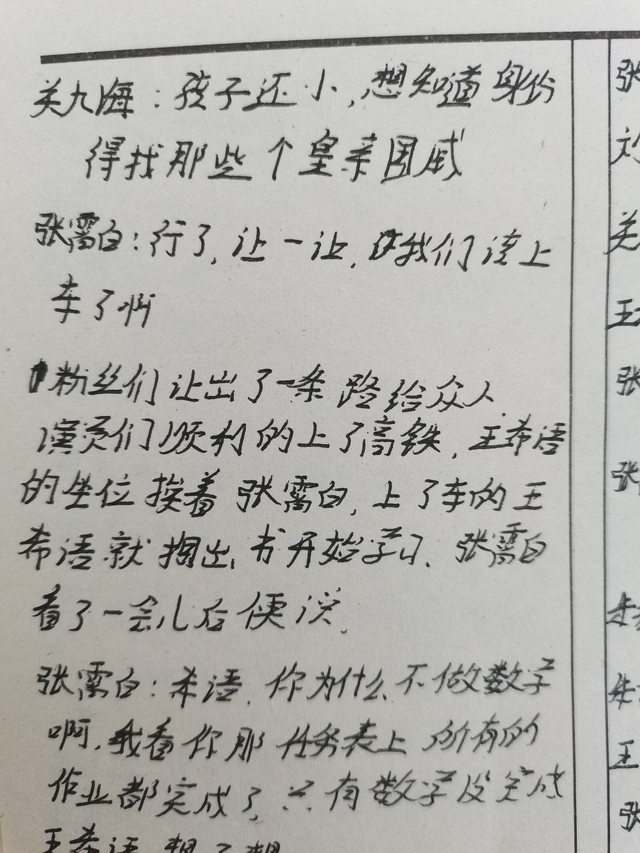 关九海：孩子还小，想知道身份
得找那些个皇亲国戚
张霄白：行了，让一让，我们该上
车了啊
粉丝们让出了一条路给众人
演员们顺利的上了高铁，王希语
的坐位挨着张霄白，上了车的王
希语就掏出书开始学习，张霄白
看了一会儿后便说，
张霄白：希语，你为什么不做数学
啊，我看你那任务表上所有的
作业都完成了，只有数学没完成
王希语想了想
张
刘
关
王
张
张
朱
朱
王
张